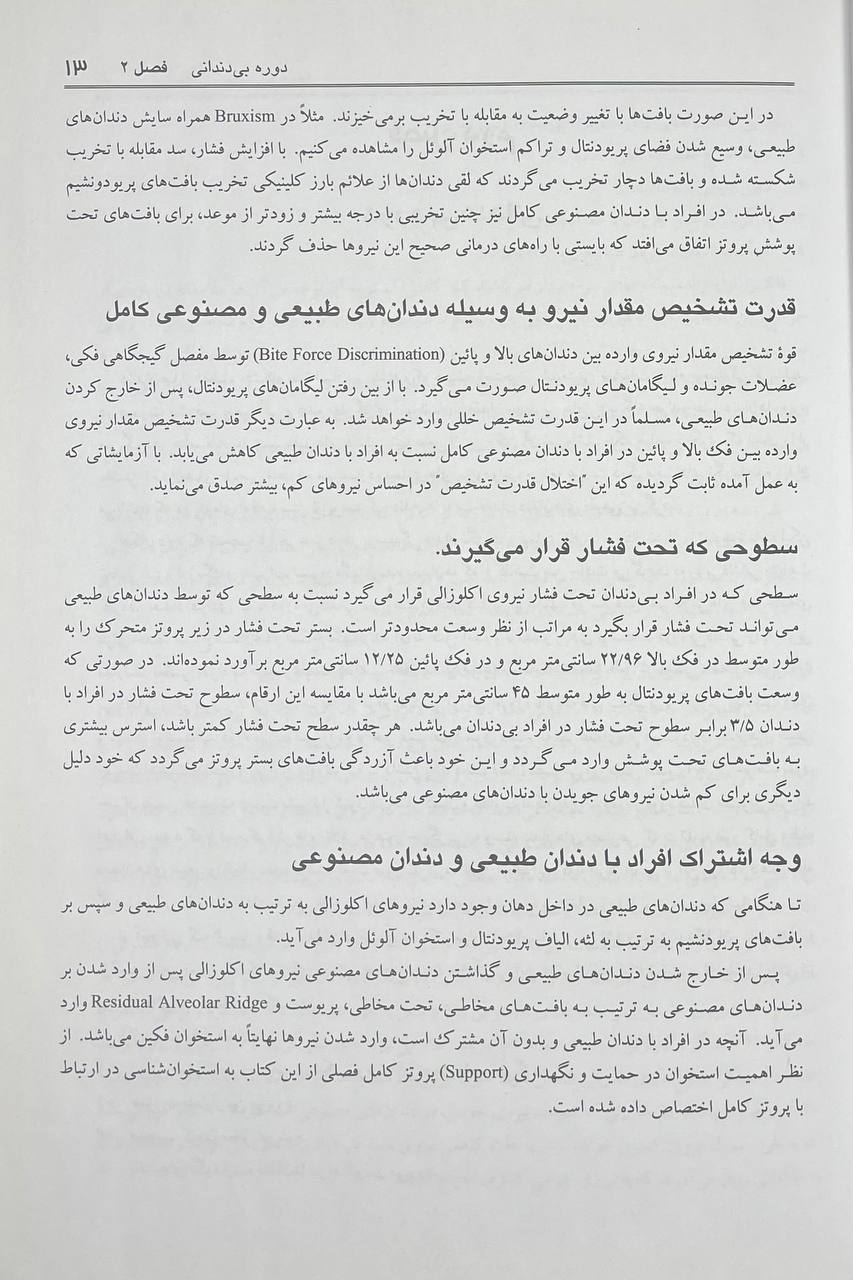 دوره بی‌دندانی فصل ۲ ۱۳
در این صورت بافت‌ها با تغییر وضعیت به مقابله با تخریب برمی‌خیزند. مثلاً در Bruxism همراه سایش دندان‌های
طبیعی، وسیع شدن فضای پریودنتال و تراکم استخوان آلوئل را مشاهده می‌کنیم. با افزایش فشار، سد مقابله با تخریب
شکسته شده و بافت‌ها دچار تخریب می‌گردند که لقی دندان‌ها از علائم بارز کلینیکی تخریب بافت‌های پریودونشیم
می‌باشد. در افراد با دندان مصنوعی کامل نیز چنین تخریبی با درجه بیشتر و زودتر از موعد، برای بافت‌های تحت
پوشش پروتز اتفاق می‌افتد که بایستی با راه‌های درمانی صحیح این نیروها حذف گردند.
قدرت تشخیص مقدار نیرو به وسیله دندان‌های طبیعی و مصنوعی کامل
قوهٔ تشخیص مقدار نیروی وارده بین دندان‌های بالا و پائین (Bite Force Discrimination) توسط مفصل گیجگاهی فکی،
عضلات جونده و لیگامان‌های پریودنتال صورت می‌گیرد. با از بین رفتن لیگامان‌های پریودنتال، پس از خارج کردن
دندان‌های طبیعی، مسلماً در این قدرت تشخیص خللی وارد خواهد شد. به عبارت دیگر قدرت تشخیص مقدار نیروی
وارده بین فک بالا و پائین در افراد با دندان مصنوعی کامل نسبت به افراد با دندان طبیعی کاهش می‌یابد. با آزمایشاتی که
به عمل آمده ثابت گردیده که این "اختلال قدرت تشخیص" در احساس نیروهای کم، بیشتر صدق می‌نماید.
سطوحی که تحت فشار قرار می‌گیرند.
سطحی که در افراد بی‌دندان تحت فشار نیروی اکلوزالی قرار می‌گیرد نسبت به سطحی که توسط دندان‌های طبیعی
می‌تواند تحت فشار قرار بگیرد به مراتب از نظر وسعت محدودتر است. بستر تحت فشار در زیر پروتز متحرک را به
طور متوسط در فک بالا ۲۲/۹۶ سانتی‌متر مربع و در فک پائین ۱۲/۲۵ سانتی‌متر مربع برآورد نموده‌اند. در صورتی که
وسعت بافت‌های پریودنتال به طور متوسط ۴۵ سانتی‌متر مربع می‌باشد با مقایسه این ارقام، سطوح تحت فشار در افراد با
دندان ۳/۵ برابر سطوح تحت فشار در افراد بی‌دندان می‌باشد. هر چقدر سطح تحت فشار کمتر باشد، استرس بیشتری
به بافت‌های تحت پوشش وارد می‌گردد و این خود باعث آزردگی بافت‌های بستر پروتز می‌گردد که خود دلیل
دیگری برای کم شدن نیروهای جویدن با دندان‌های مصنوعی می‌باشد.
وجه اشتراک افراد با دندان طبیعی و دندان مصنوعی
تا هنگامی که دندان‌های طبیعی در داخل دهان وجود دارد نیروهای اکلوزالی به ترتیب به دندان‌های طبیعی و سپس بر
بافت‌های پریودنشیم به ترتیب به لثه، الیاف پریودنتال و استخوان آلوئل وارد می‌آید.
پس از خارج شدن دندان‌های طبیعی و گذاشتن دندان‌های مصنوعی نیروهای اکلوزالی پس از وارد شدن بر
دندان‌های مصنوعی به ترتیب به بافت‌های مخاطی، تحت مخاطی، پریوست و Residual Alveolar Ridge وارد
می‌آید. آنچه در افراد با دندان طبیعی و بدون آن مشترک است، وارد شدن نیروها نهایتاً به استخوان فکین می‌باشد. از
نظر اهمیت استخوان در حمایت و نگهداری (Support) پروتز کامل فصلی از این کتاب به استخوان‌شناسی در ارتباط
با پروتز کامل اختصاص داده شده است.